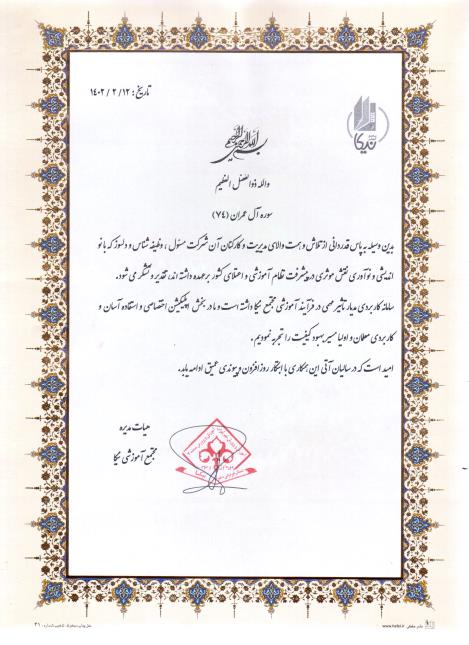 تاریخ: ۱۴۰۲ / ۲ / ۱۲
نیکا
بسم الله الرحمن الرحیم
والله ذوالفضل العظیم
سوره آل عمران (۷۴)
بدین وسیله به پاس قدردانی از تلاش و همت والای مدیریت و کارکنان آن شرکت مسئول، وظیفه شناس و دلسوز که با نو
اندیشی و نوآوری نقش موثری در پیشرفت نظام آموزشی و اعتلای کشور بر عهده داشته اند، تقدیر و تشکر می شود.
سامانه کاربردی مدبار تأثیر مهمی در فرآیند آموزشی مجتمع نیکا داشته است و ما در بخش اپلیکیشن اختصاصی و استفاده آسان و
کاربردی معلمان و اولیا مسیر بهبود کیفیت را تجربه نمودیم.
امید است که در سالیان آتی این همکاری با ابتکار روزافزون و پیوندی عمیق ادامه یابد.
هیات مدیره
مجتمع آموزشی نیکا
www.hafizi.ir